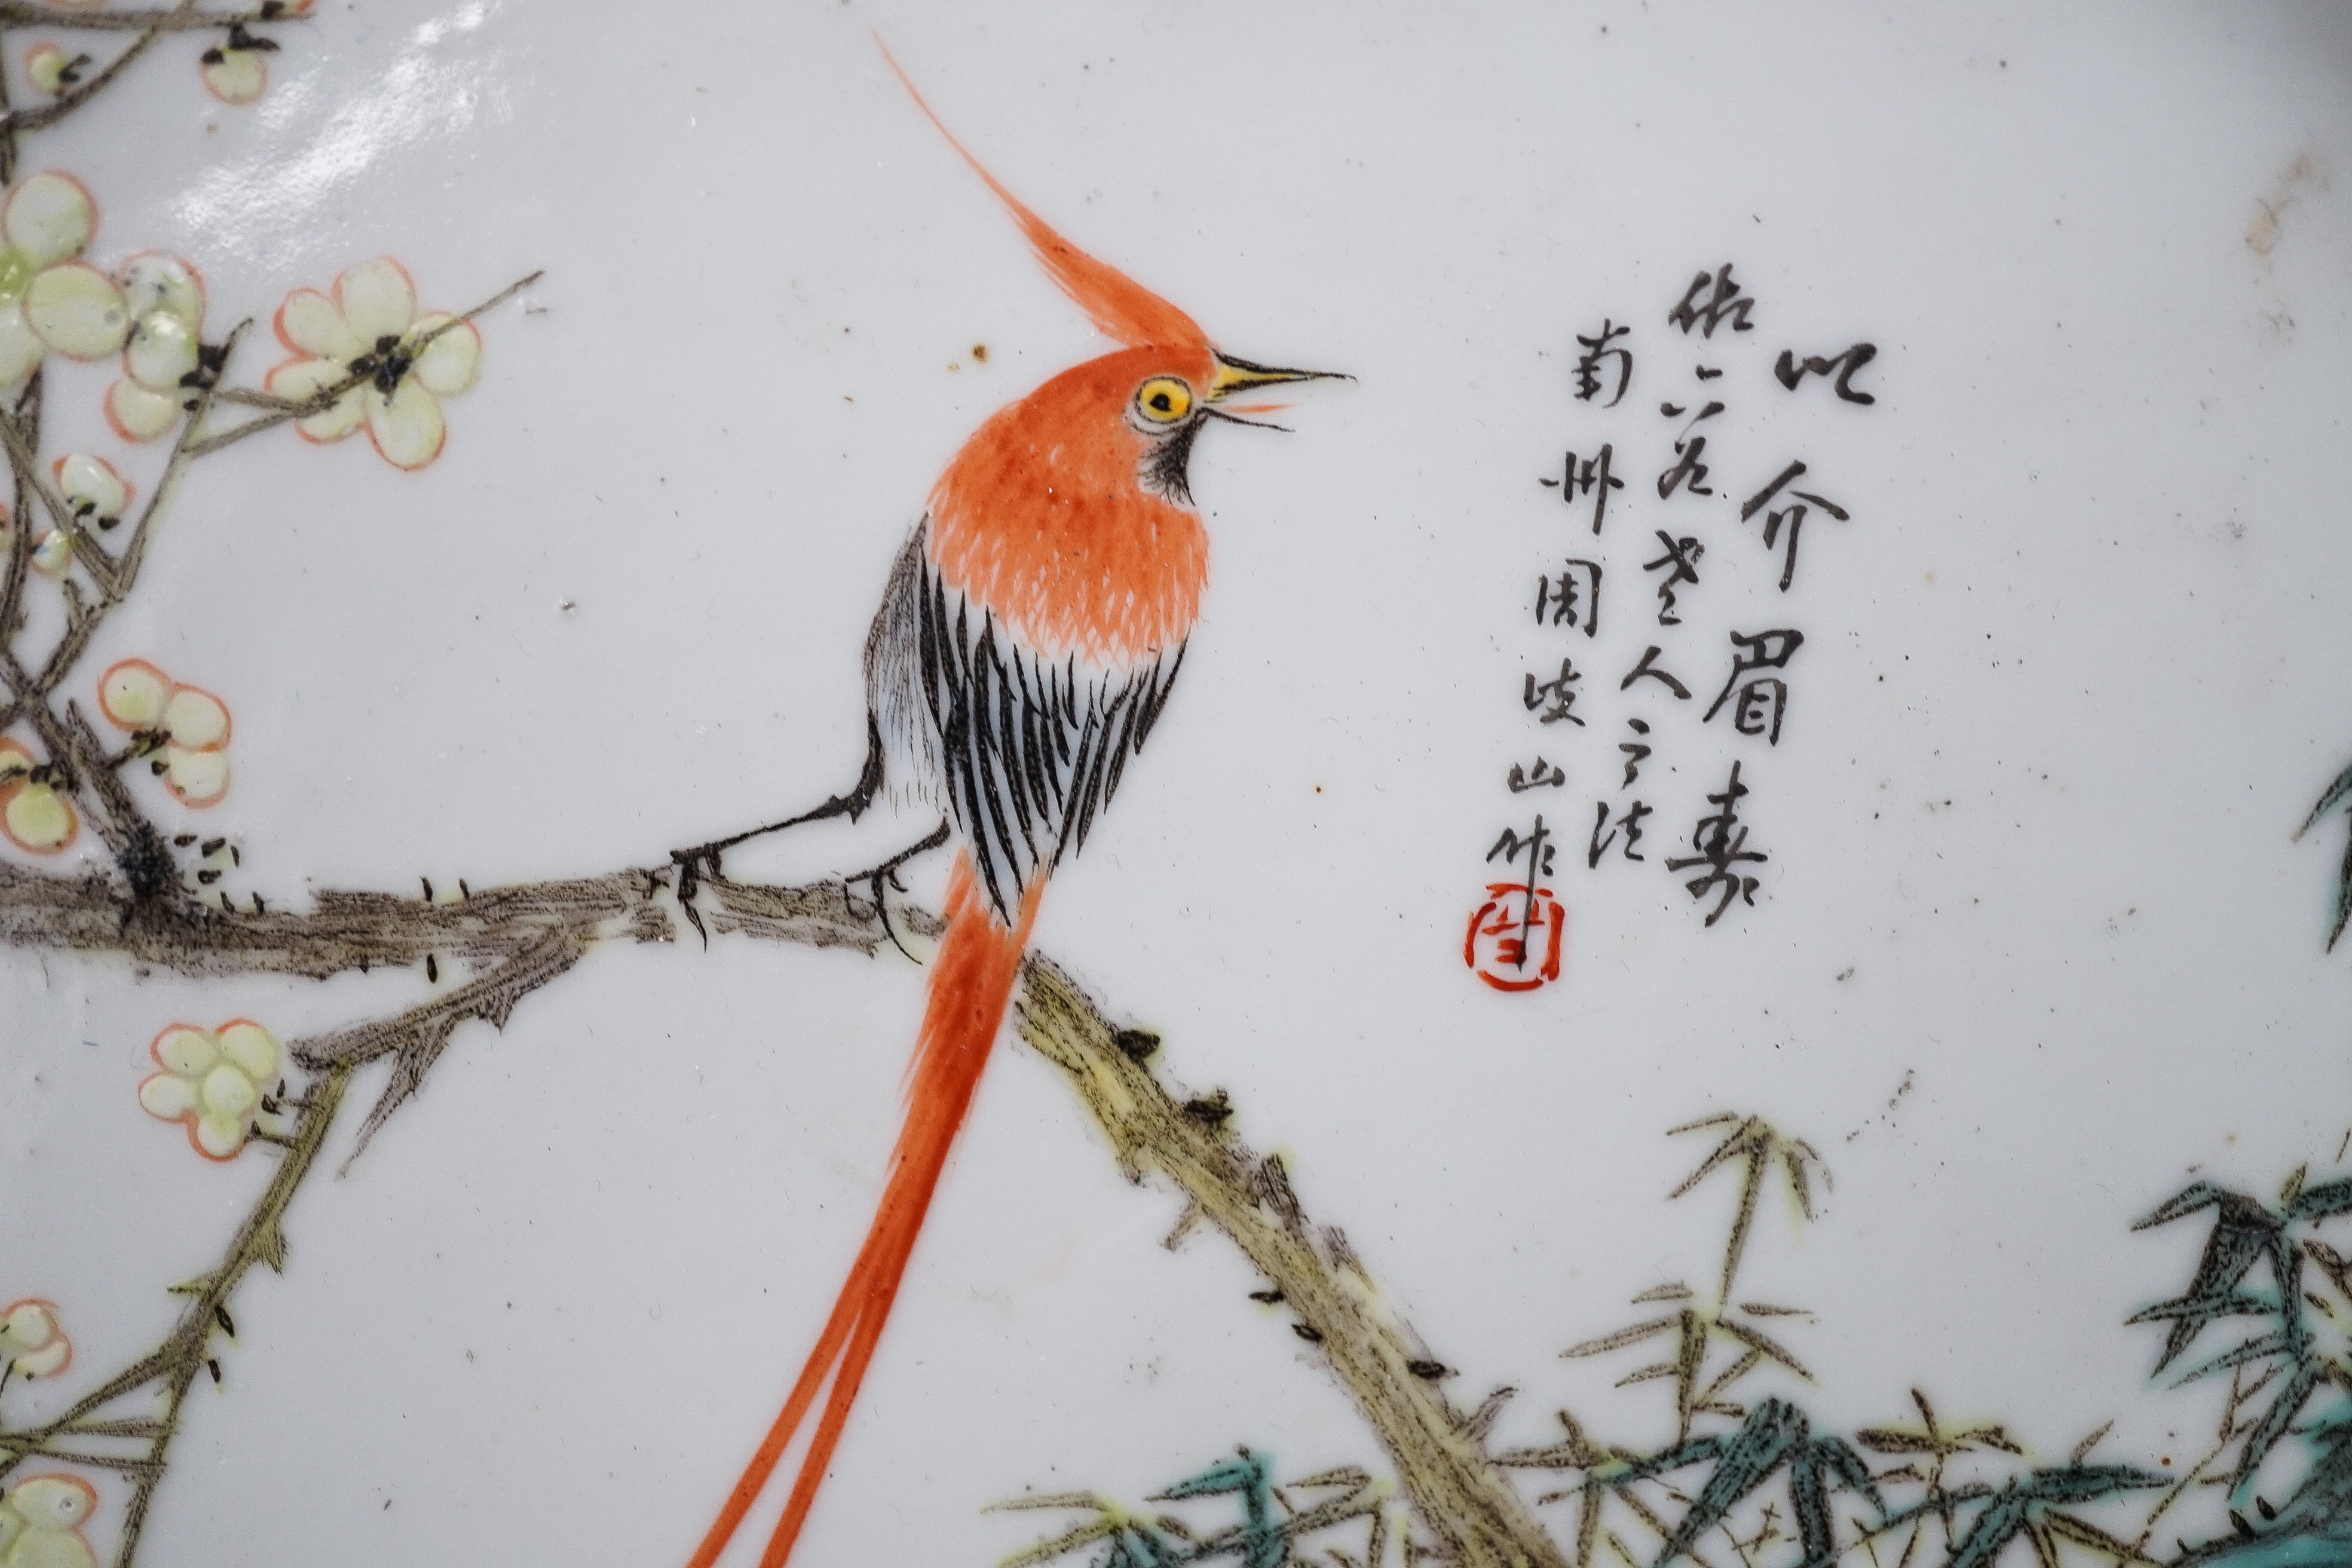 以介眉壽
仿六谷老人之法
南州周岐山作